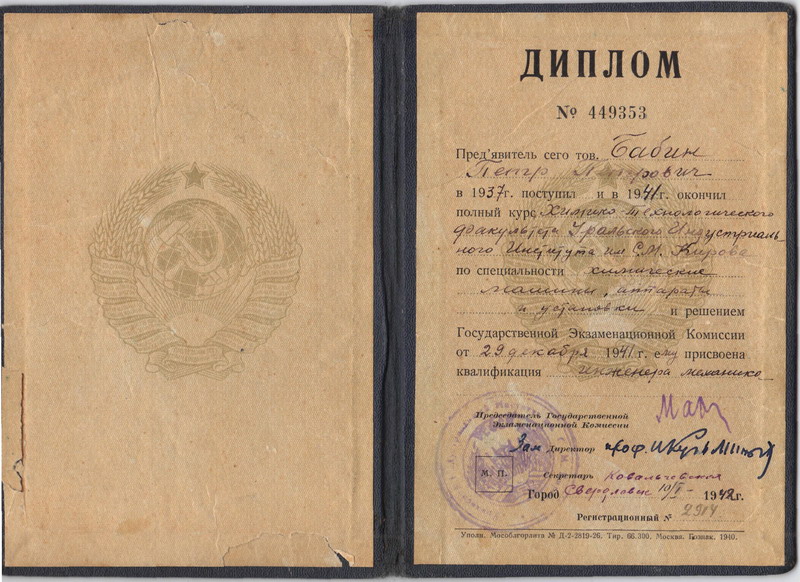 ДИПЛОМ
№ 449353
Пред'явитель сего тов. Бабин
Петр Петрович
в 1937г. поступил и в 1941г. окончил
полный курс Химико-технологического
факультета Уральского Индустриаль-
ного Института им С.М. Кирова
по специальности химические
машины, аппараты
и установки и решением
Государственной Экзаменационной Комиссии
от 29 декабря 1941 г. ему присвоена
квалификация инженера механика
Председатель Государственной
Экзаменационной Комиссии
Зам Директор проф.
М. П.
Секретарь Ковальчевская
Город Свердловск 10/I- 1942г.
Регистрационный №
Уполн. Мособлгорлита № Д-2-2819-26. Тир. 66.300. Москва. Гознак. 1940.